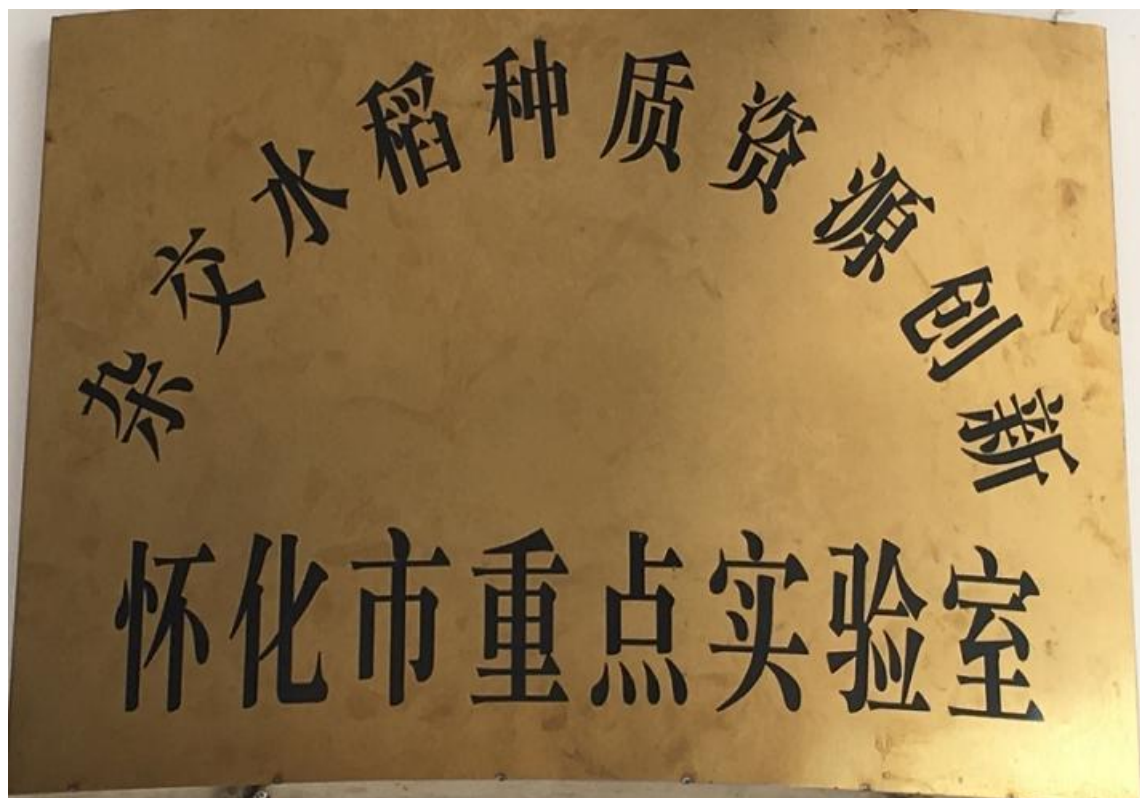 杂交水稻种质资源创新
怀化市重点实验室